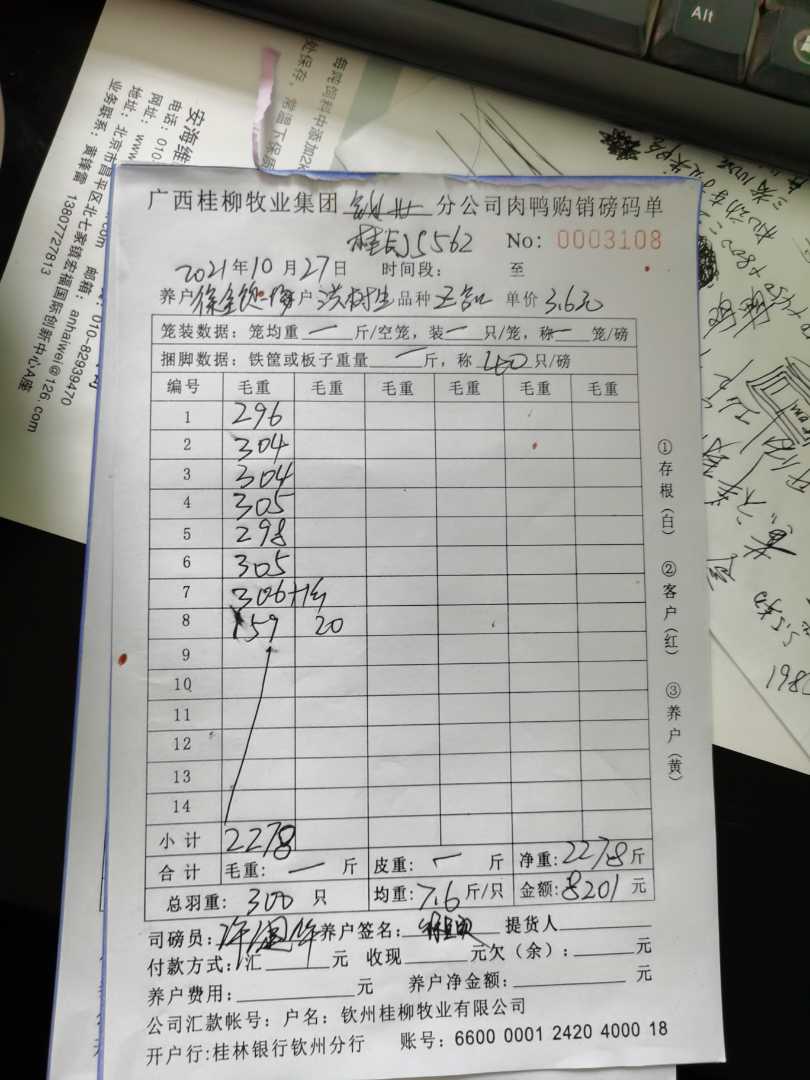 每吨饲料中添加2k
处保存，常温下保质
安海维
电话：010
网址：www
地址：北京市昌平区北七家镇宏福国际创新中心A座
业务联系：黄锋霄 13807727813
010-82939470
邮箱：annaiwei@126.com
Alt
广西桂柳牧业集团 钦州 分公司肉鸭购销磅码单
桂EJ5562 No: 0003108
2021年10月27日 时间段： 至
养户 客户 洪树生 品种 单价 3.6元
笼装数据：笼均重 一 斤/空笼，装 一 只/笼，称 一 笼/磅
捆脚数据：铁筐或板子重量 一 斤，称 40 只/磅
编号 毛重 毛重 毛重 毛重 毛重 毛重
1 296
2 304
3 304
4 305
5 298
6 305
7 306
8 159 20
9
10
11
12
13
14
小计 2278
合计 毛重： 一 斤 皮重： 一 斤 净重：2278斤
总羽重： 300 只 均重：7.6斤/只 金额：8201元
司磅员： 养户签名： 提货人
付款方式：汇 元 收现 元欠（余）： 元
养户费用： 元 养户净金额： 元
公司汇款帐号：户名：钦州桂柳牧业有限公司
开户行:桂林银行钦州分行 账号：6600 0001 2420 4000 18
①存根（白） ②客户（红） ③养户（黄）